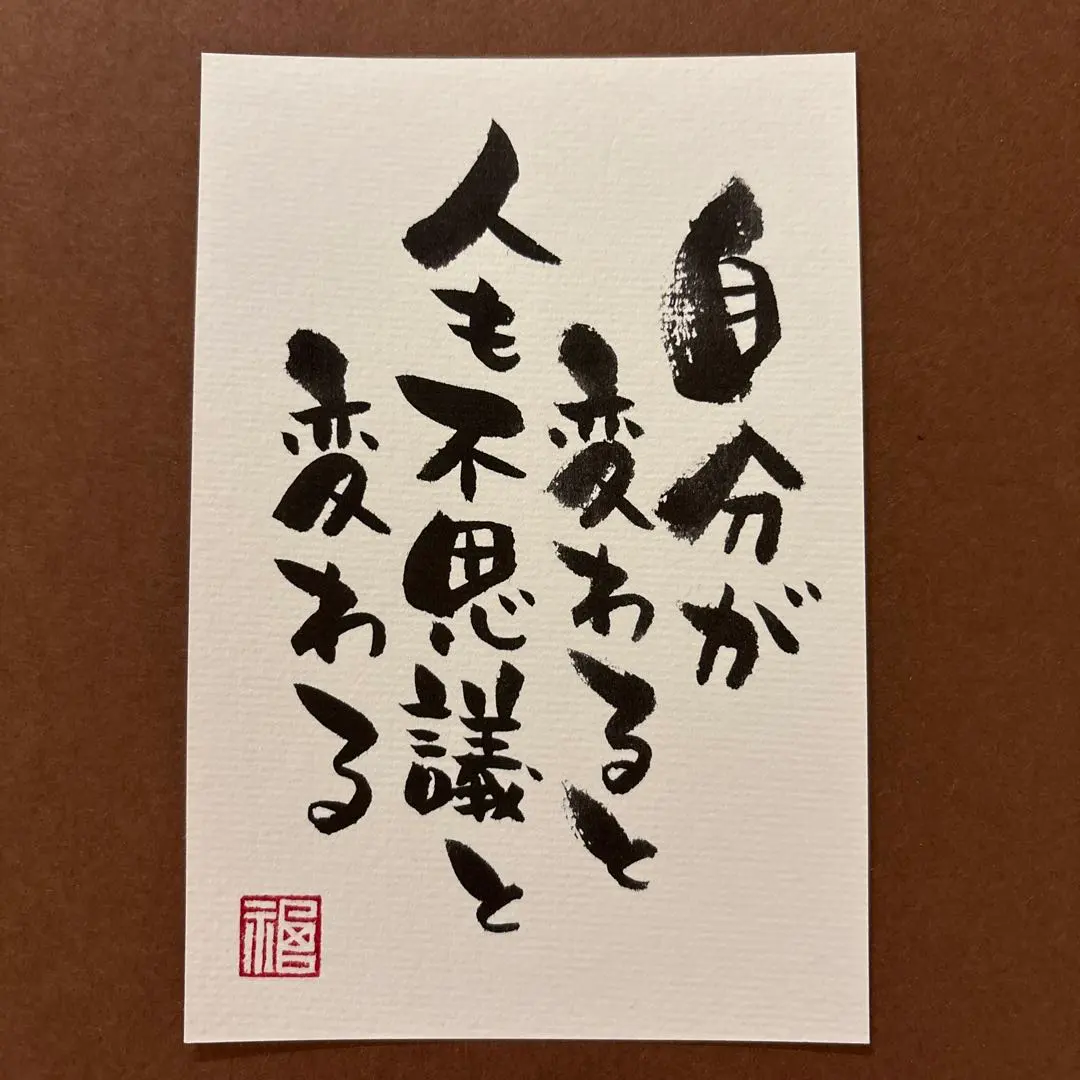 自分が
変わると
人も不思議と
変わる